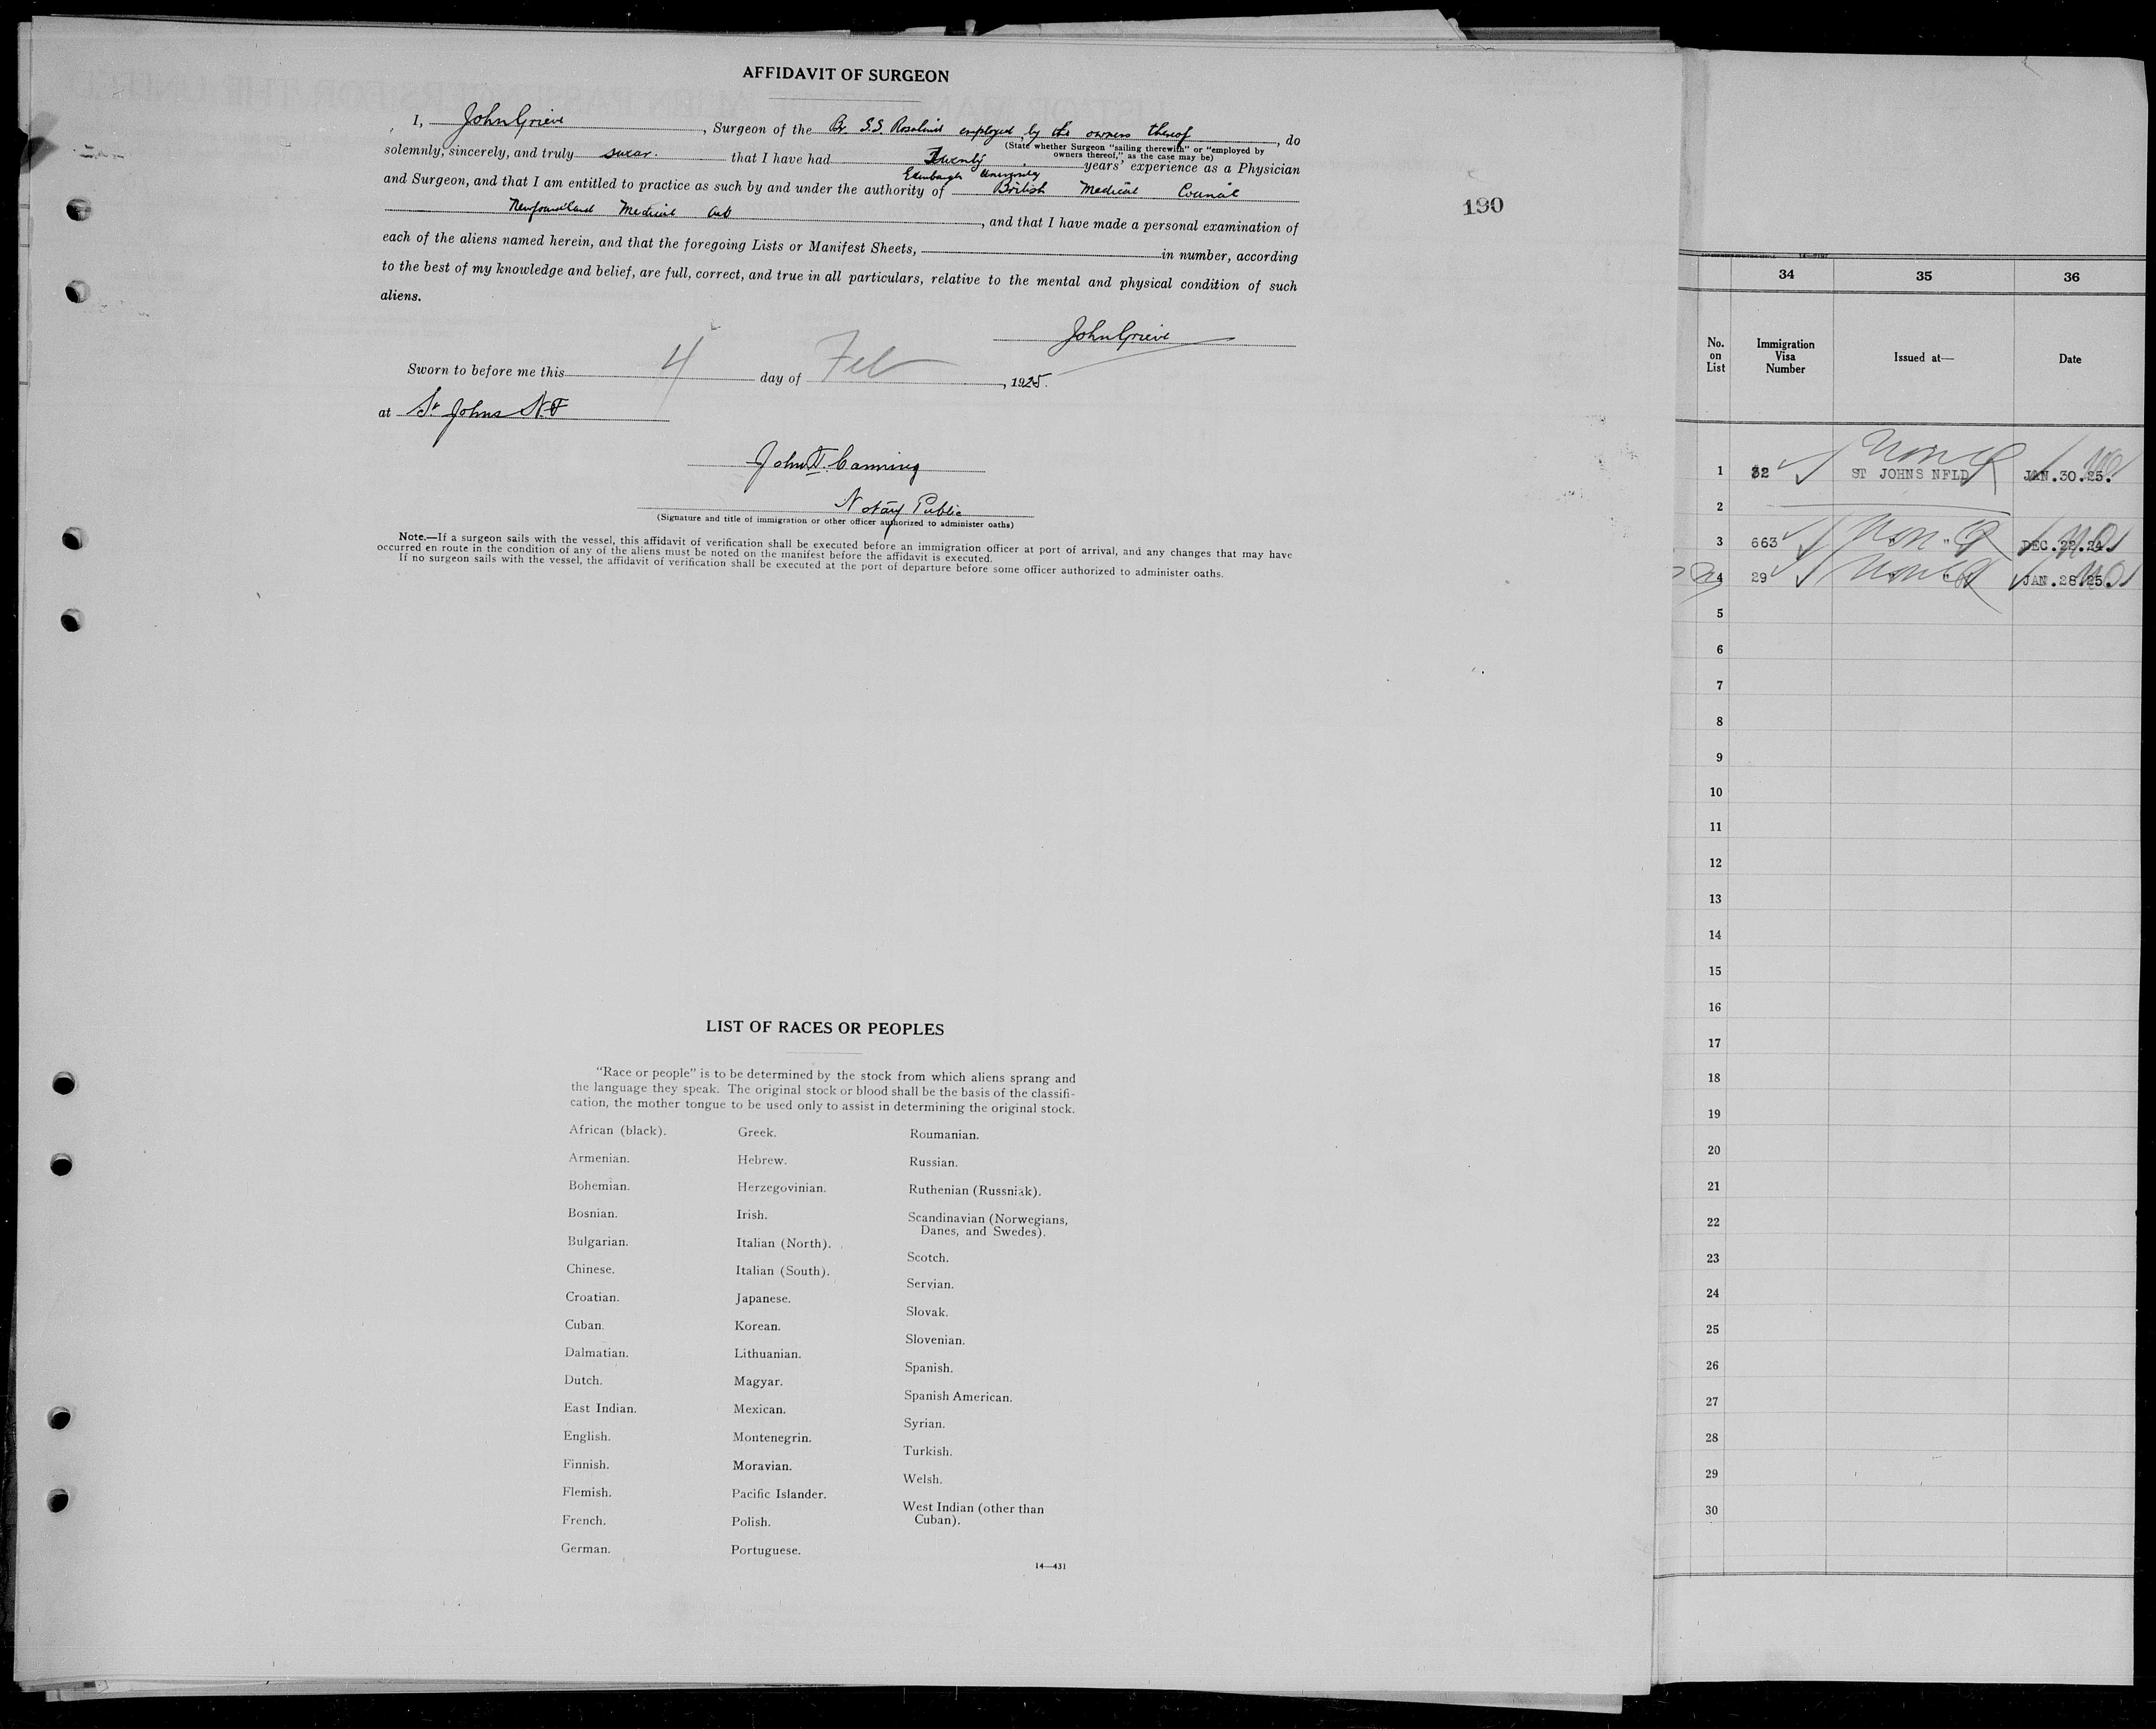 AFFIDAVIT OF SURGEON
I, John Grieve, Surgeon of the Br. S.S. Rosalind employed by the owners thereof, do
(State whether Surgeon "sailing therewith" or "employed by
owners thereof," as the case may be)
solemnly, sincerely, and truly swear. that I have had Twenty years' experience as a Physician
Edinburgh University
and Surgeon, and that I am entitled to practice as such by and under the authority of British Medical Council
Newfoundland Medical Act, and that I have made a personal examination of
each of the aliens named herein, and that the foregoing Lists or Manifest Sheets, in number, according
to the best of my knowledge and belief, are full, correct, and true in all particulars, relative to the mental and physical condition of such
aliens.
John Grieve
Sworn to before me this 4 day of Feb, 1925.
at St Johns N.F
John T. Canning
Notary Public
(Signature and title of immigration or other officer authorized to administer oaths)
Note.—If a surgeon sails with the vessel, this affidavit of verification shall be executed before an immigration officer at port of arrival, and any changes that may have
occurred en route in the condition of any of the aliens must be noted on the manifest before the affidavit is executed.
If no surgeon sails with the vessel, the affidavit of verification shall be executed at the port of departure before some officer authorized to administer oaths.
190
LIST OF RACES OR PEOPLES
"Race or people" is to be determined by the stock from which aliens sprang and
the language they speak. The original stock or blood shall be the basis of the classifi-
cation, the mother tongue to be used only to assist in determining the original stock.
African (black).
Armenian.
Bohemian.
Bosnian.
Bulgarian.
Chinese.
Croatian.
Cuban.
Dalmatian.
Dutch.
East Indian.
English.
Finnish.
Flemish.
French.
German.
Greek.
Hebrew.
Herzegovinian.
Irish.
Italian (North).
Italian (South).
Japanese.
Korean.
Lithuanian.
Magyar.
Mexican.
Montenegrin.
Moravian.
Pacific Islander.
Polish.
Portuguese.
Roumanian.
Russian.
Ruthenian (Russniak).
Scandinavian (Norwegians,
Danes, and Swedes).
Scotch.
Servian.
Slovak.
Slovenian.
Spanish.
Spanish American.
Syrian.
Turkish.
Welsh.
West Indian (other than
Cuban).
14—431
34 35 36
No.
on
List
Immigration
Visa
Number
Issued at—
Date
1 32 ST JOHNS NFLD JAN.30.25.
2
3 663 " " DEC.22.24.
4 29 " " JAN.28.25.
5
6
7
8
9
10
11
12
13
14
15
16
17
18
19
20
21
22
23
24
25
26
27
28
29
30